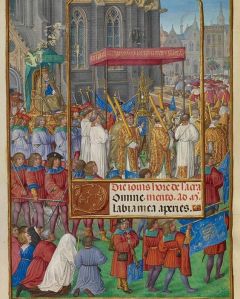 Die iouis hore de sacra
mento. ad mͣ.
Domine
labia mea aperies.